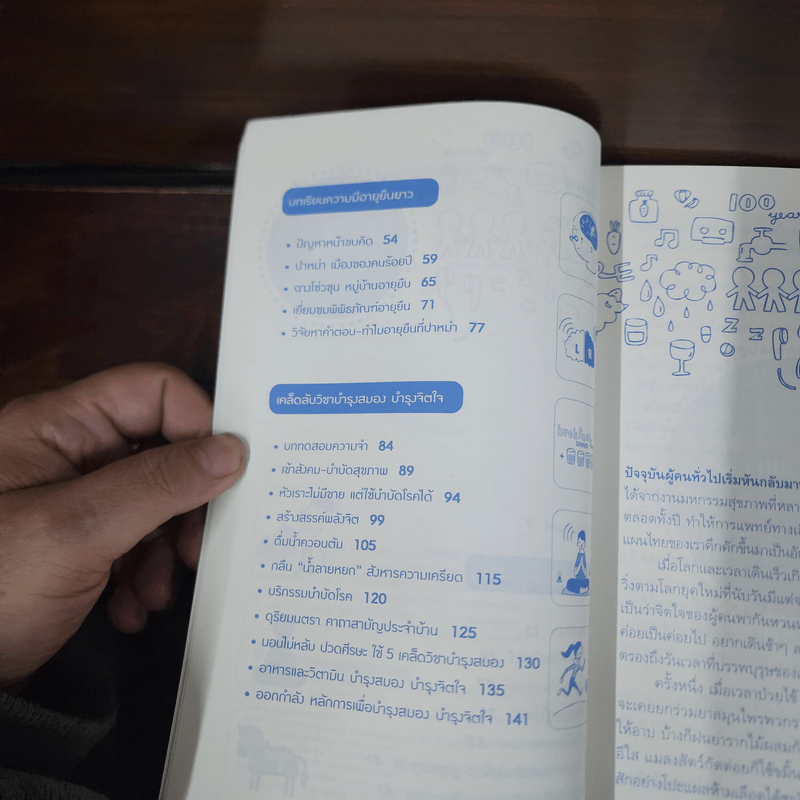 บทเรียนความมีอายุยืนยาว
• ปัญหาหน้าขบคิด 54
• ปาหม่า เมืองของคนร้อยปี 59
• ฉางโซ่วชุน หมู่บ้านอายุยืน 65
• เยี่ยมชมพิพิธภัณฑ์อายุยืน 71
• วิจัยหาคำตอบ-ทำไมอายุยืนที่ปาหม่า 77
เคล็ดลับวิชาบำรุงสมอง บำรุงจิตใจ
• บททดสอบความจำ 84
• เข้าสังคม-บำบัดสุขภาพ 89
• หัวเราะไม่มีขาย แต่ใช้บำบัดโรคได้ 94
• สร้างสรรค์พลังจิต 99
• ดื่มน้ำควอนตัม 105
• กลืน “น้ำลายหยก” สังหารความเครียด 115
• บริกรรมบำบัดโรค 120
• ดุริยมนตรา คาถาสามัญประจำบ้าน 125
• นอนไม่หลับ ปวดศีรษะ ใช้ 5 เคล็ดวิชาบำรุงสมอง 130
• อาหารและวิตามิน บำรุงสมอง บำรุงจิตใจ 135
• ออกกำลัง หลักการเพื่อบำรุงสมอง บำรุงจิตใจ 141
100
years
L R
z z
ปัจจุบันผู้คนทั่วไปเริ่มหันกลับมา
ได้จากงานมหกรรมสุขภาพที่หลา
ตลอดทั้งปี ทำให้การแพทย์ทางเ
แผนไทยของเราคึกคักขึ้นมาเป็นอัน
เมื่อโลกและเวลาเดินเร็วเกิ
วิ่งตามโลกยุคใหม่ที่นับวันมีแต่จะ
เป็นว่าจิตใจของผู้คนพากันหวนห
ค่อยเป็นค่อยไป อยากเดินช้าๆ ล
ตรองถึงวันเวลาที่บรรพบุรุษของเ
ครั้งหนึ่ง เมื่อเวลาป่วยไข้
จะเคยยกร่วมยาสมุนไพรพวกร
ให้อาบ บ้างก็ฝนยารากไม้ผสมกั
อีใส แมลงสัตว์กัดต่อยก็ใช้ขมิ้น